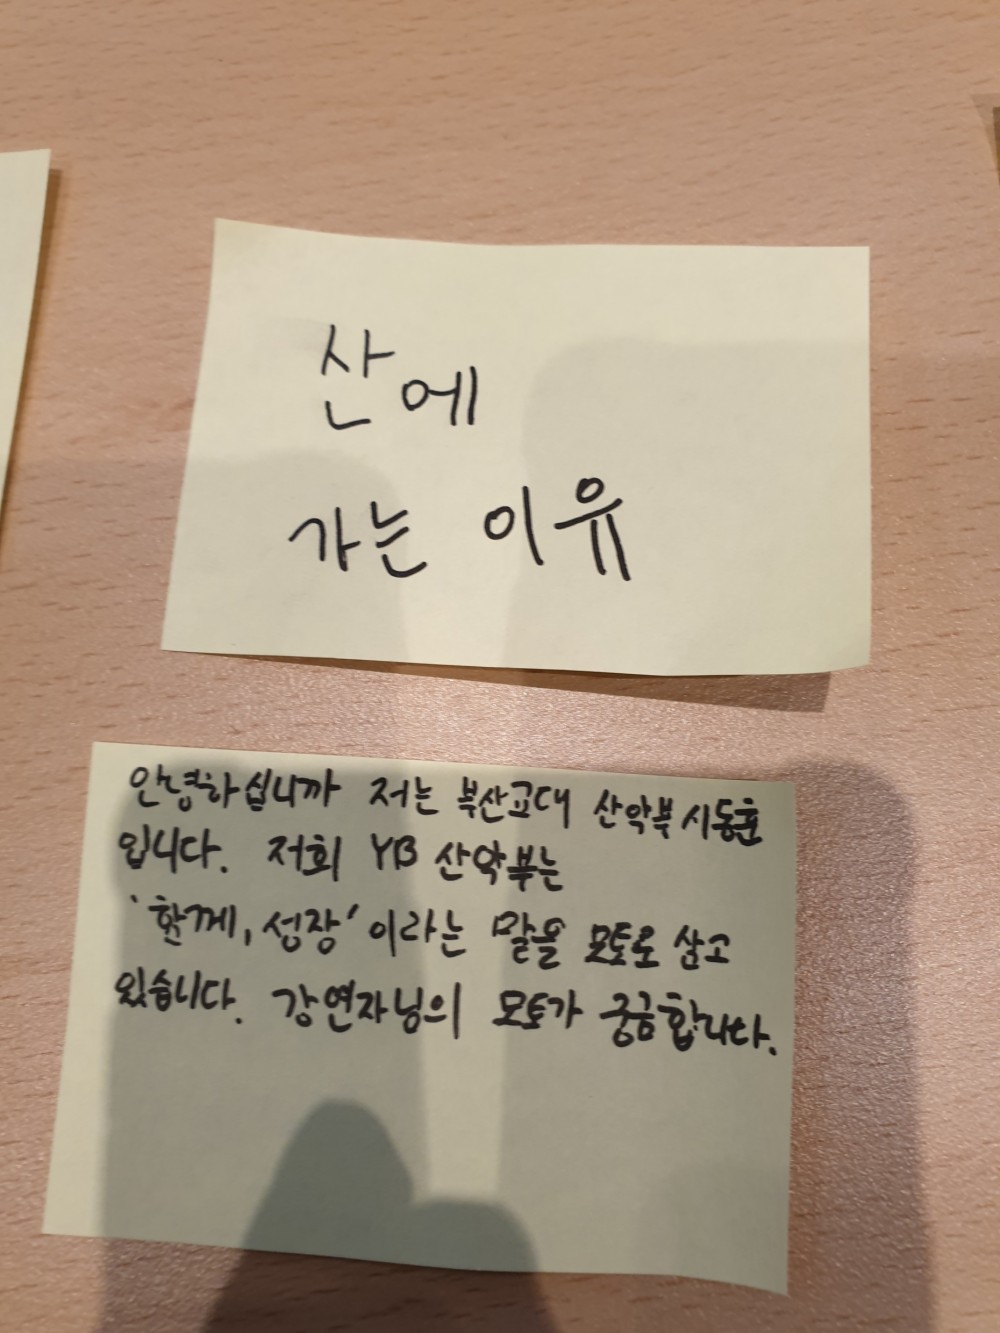 산에
가는 이유
안녕하십니까 저는 부산교대 산악부 시동훈
입니다. 저희 YB 산악부는
'함께, 성장' 이라는 말을 모토로 삼고
있습니다. 강연자님의 모토가 궁금합니다.